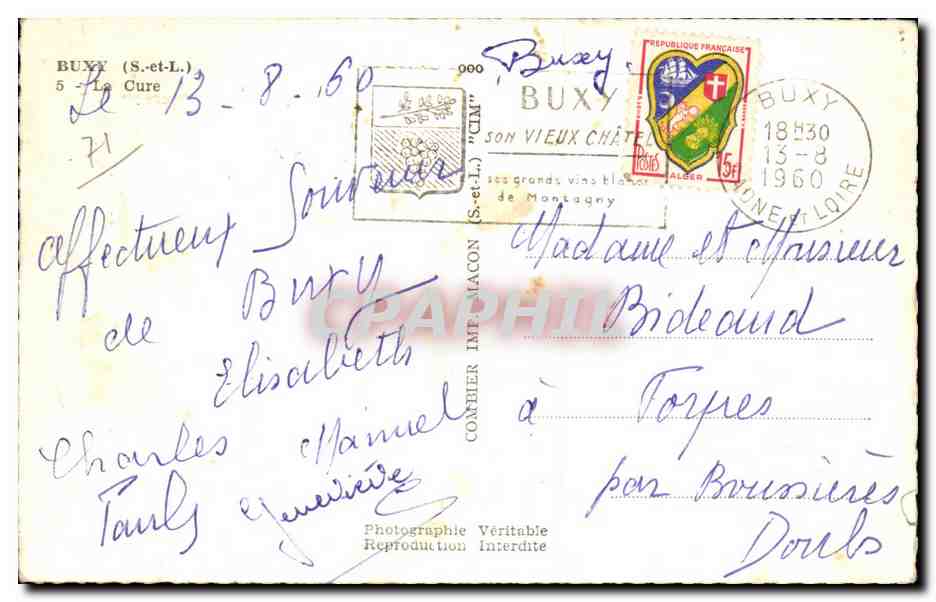 BUXY (S.-et-L.)
5 - La Cure
Le 13-8-60
71
affectueux Souvenir
de Buxy
Elisabeth
Charles Manuel
Geneviève
Photographie Véritable
Reproduction Interdite
COMBIER IMP. MACON (S.-et-L.) "CIM"
ooo
Buxy.
BUXY
SON VIEUX CHÂTEL
ses grands vins blancs
de Montagny
REPUBLIQUE FRANÇAISE
POSTES
15F
ALGER
BUXY
18H30
13-8
1960
SAONE et LOIRE
CPARPHIL
Madame et Monsieur
Bideaud
à Torpes
par Boussières
Doubs